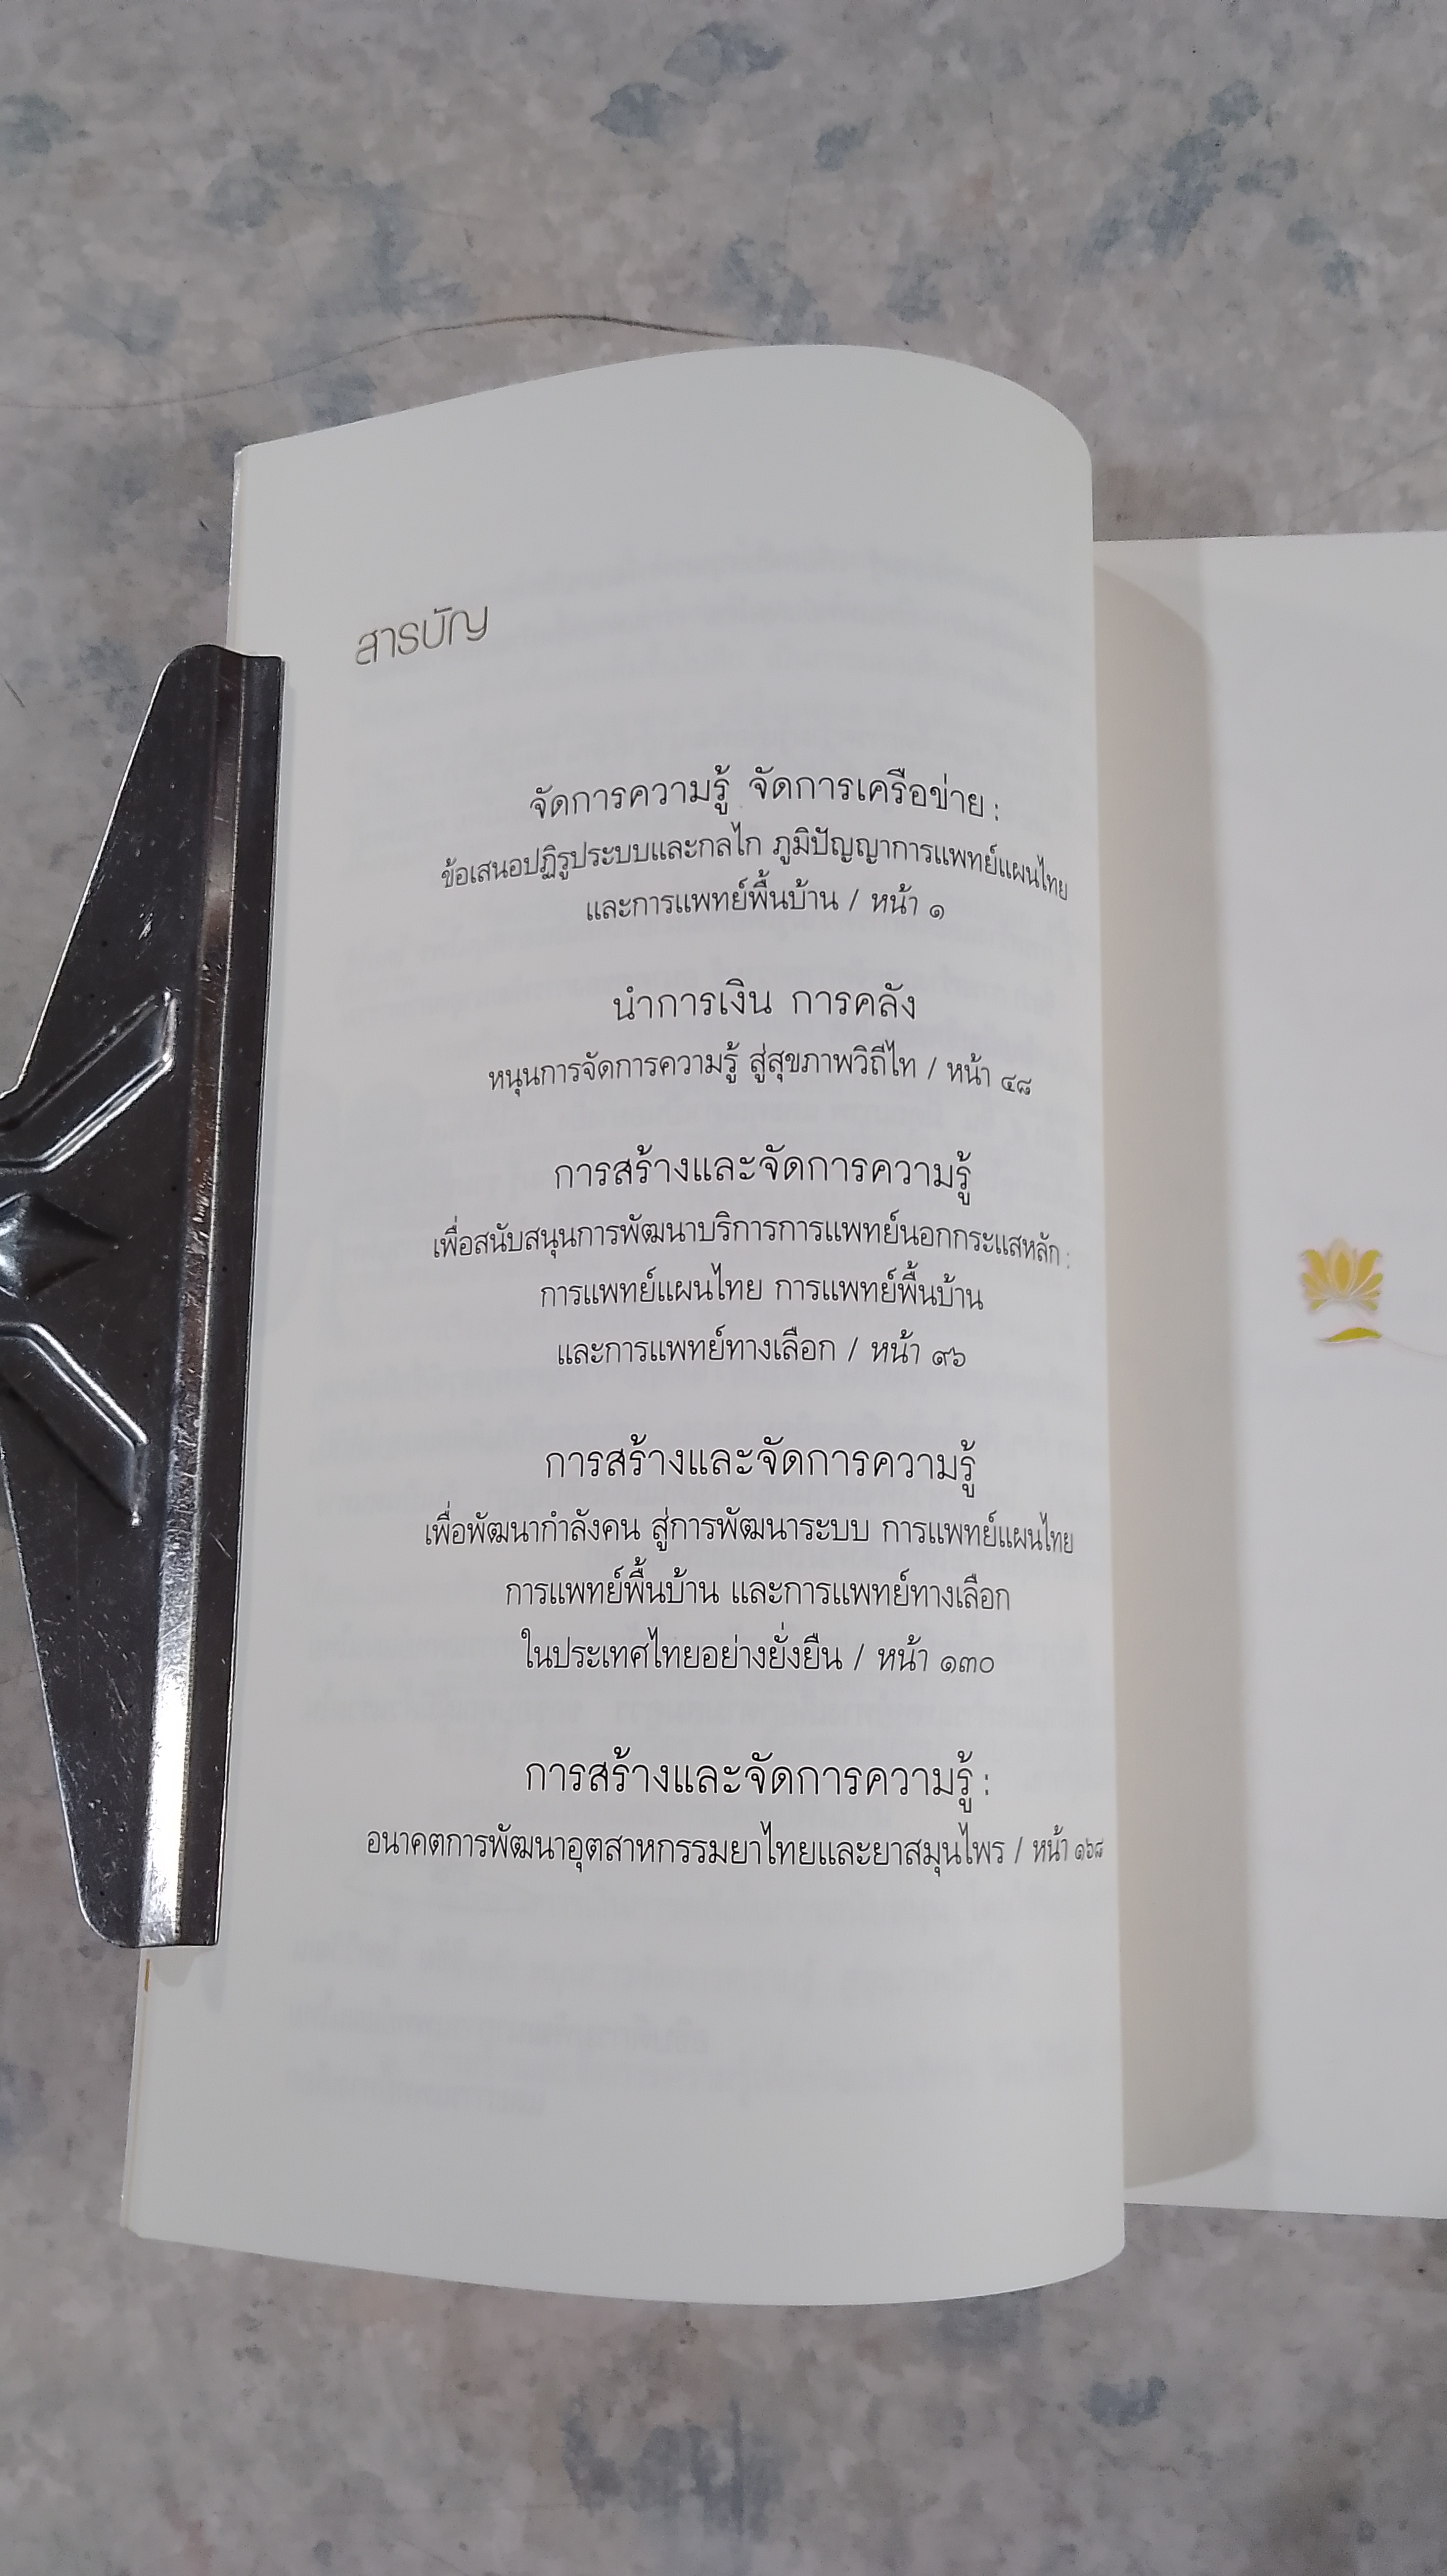 สารบัญ
จัดการความรู้ จัดการเครือข่าย :
ข้อเสนอปฏิรูประบบและกลไก ภูมิปัญญาการแพทย์แผนไทย
และการแพทย์พื้นบ้าน / หน้า ๑
นำการเงิน การคลัง
หนุนการจัดการความรู้ สู่สุขภาพวิถีไท / หน้า ๔๘
การสร้างและจัดการความรู้
เพื่อสนับสนุนการพัฒนาบริการการแพทย์นอกกระแสหลัก :
การแพทย์แผนไทย การแพทย์พื้นบ้าน
และการแพทย์ทางเลือก / หน้า ๙๖
การสร้างและจัดการความรู้
เพื่อพัฒนากำลังคน สู่การพัฒนาระบบ การแพทย์แผนไทย
การแพทย์พื้นบ้าน และการแพทย์ทางเลือก
ในประเทศไทยอย่างยั่งยืน / หน้า ๑๓๐
การสร้างและจัดการความรู้ :
อนาคตการพัฒนาอุตสาหกรรมยาไทยและยาสมุนไพร / หน้า ๑๖๘